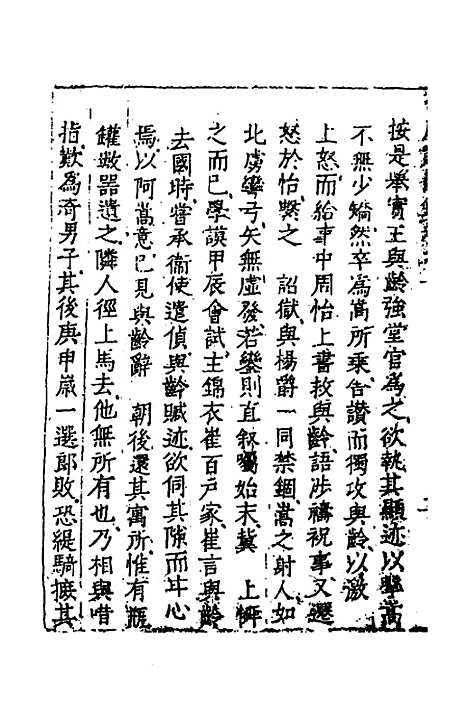 按是舉實王與齡強堂官為之欲執其顯迹以壓嵩
不無少矯然卒為嵩所乘告讚而獨攻與齡以激
上怒而給事中周怡上書救與齡語涉禱祝事又遷
怒於怡繫之 詔獄與楊爵一同禁錮嵩之射人如
北虜彎弓矢無虛發若鑾則直叙囑始末冀 上悟
之而已學謨甲辰會試主錦衣崔百戶家崔言與齡
去國時嘗承衛使遣偵與齡贓迹欲伺其隙而甘心
焉以阿嵩意已見與齡辭 朝後還其寓所惟有瓶
罐數器遺之隣人徑上馬去他無所有也乃相與咋
指歎為奇男子其後庚申嵗一選郎敗恐緹騎掖其